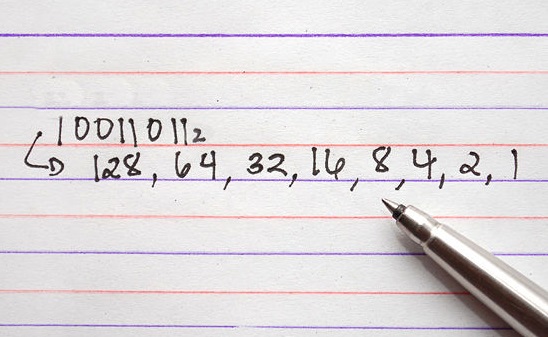 10011011₂
↳ 128, 64, 32, 16, 8, 4, 2, 1